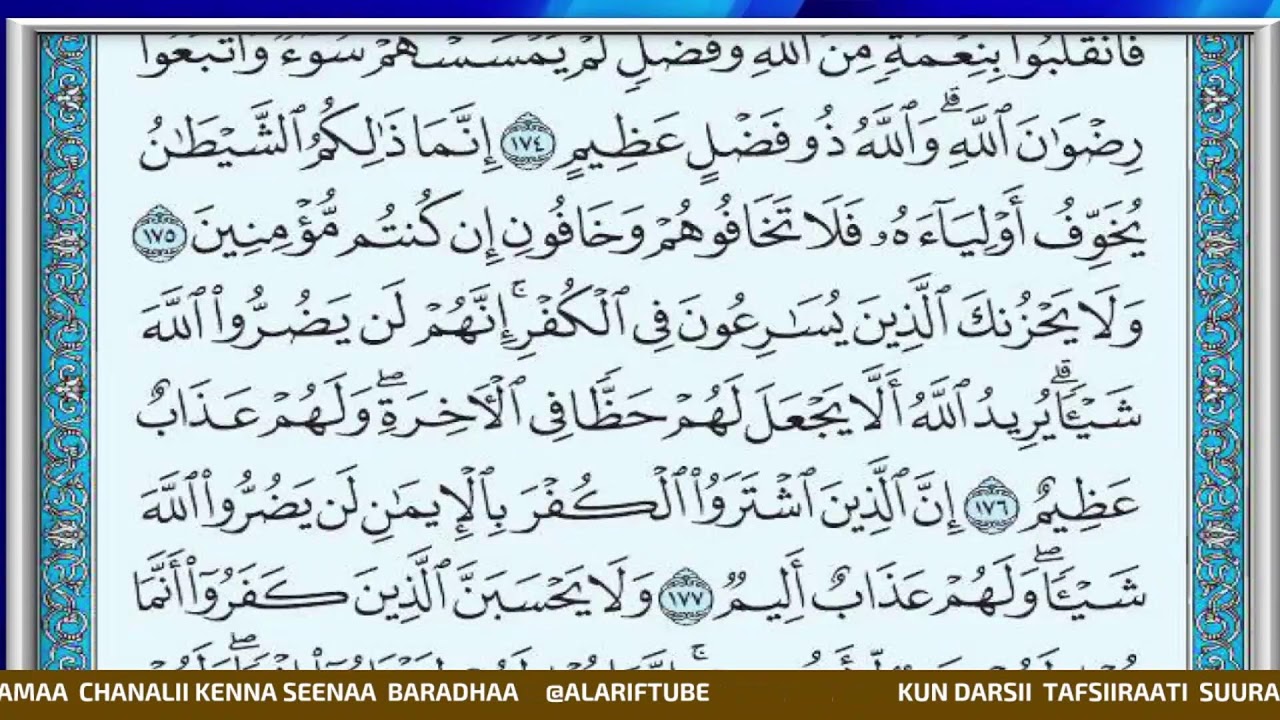 فَٱنقَلَبُوا۟ بِنِعْمَةٍ مِّنَ ٱللَّهِ وَفَضْلٍ لَّمْ يَمْسَسْهُمْ سُوٓءٌ وَٱتَّبَعُوا۟
رِضْوَٰنَ ٱللَّهِ ۗ وَٱللَّهُ ذُو فَضْلٍ عَظِيمٍ ١٧٤ إِنَّمَا ذَٰلِكُمُ ٱلشَّيْطَٰنُ
يُخَوِّفُ أَوْلِيَآءَهُۥ فَلَا تَخَافُوهُمْ وَخَافُونِ إِن كُنتُم مُّؤْمِنِينَ ١٧٥
وَلَا يَحْزُنكَ ٱلَّذِينَ يُسَٰرِعُونَ فِى ٱلْكُفْرِ ۚ إِنَّهُمْ لَن يَضُرُّوا۟ ٱللَّهَ
شَيْـًٔا ۗ يُرِيدُ ٱللَّهُ أَلَّا يَجْعَلَ لَهُمْ حَظًّا فِى ٱلْـَٔاخِرَةِ ۖ وَلَهُمْ عَذَابٌ
عَظِيمٌ ١٧٦ إِنَّ ٱلَّذِينَ ٱشْتَرَوُا۟ ٱلْكُفْرَ بِٱلْإِيمَٰنِ لَن يَضُرُّوا۟ ٱللَّهَ
شَيْـًٔا ۖ وَلَهُمْ عَذَابٌ أَلِيمٌ ١٧٧ وَلَا يَحْسَبَنَّ ٱلَّذِينَ كَفَرُوٓا۟ أَنَّمَا
AMAA CHANALII KENNA SEENAA BARADHAA @ALARIFTUBE KUN DARSII TAFSIIRAATI SUURA